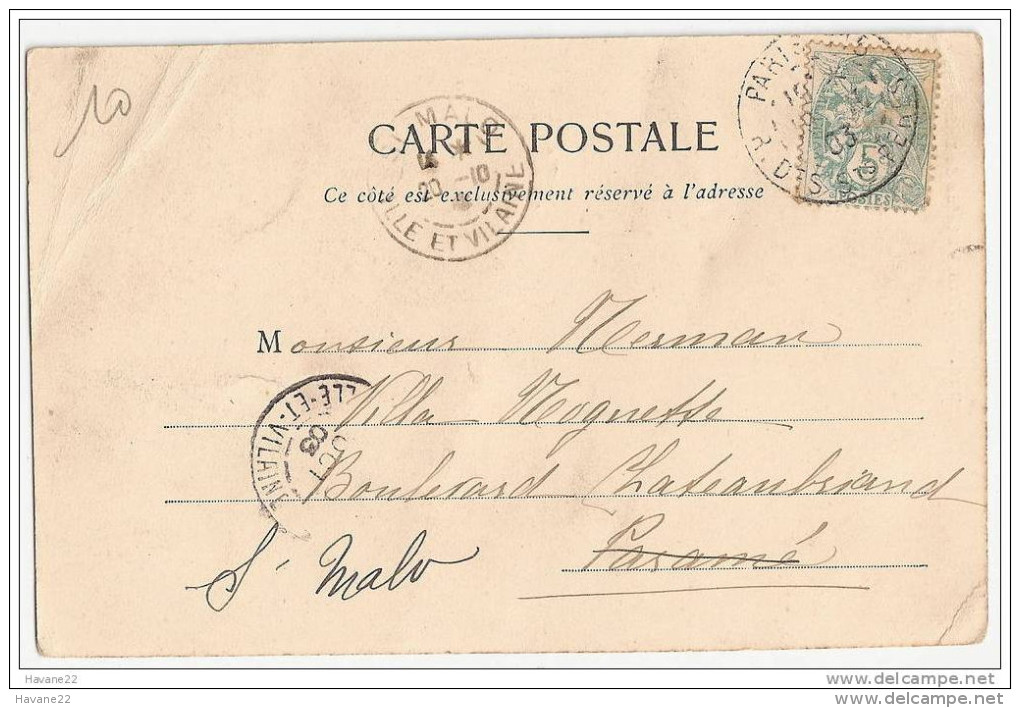 10
CARTE POSTALE
Ce côté est exclusivement réservé à l'adresse
MALO
20 -10
ILLE ET VILAINE
PARIS
R. DES STS PERES
03
5
POSTES
Monsieur Herman
Villa Noguette
ILLE-ET-VILAINE
OCT
03
Boulevard Chateaubriand
Paramé
St Malo
Havane22
www.delcampe.net
Havane22
www.delcampe.net